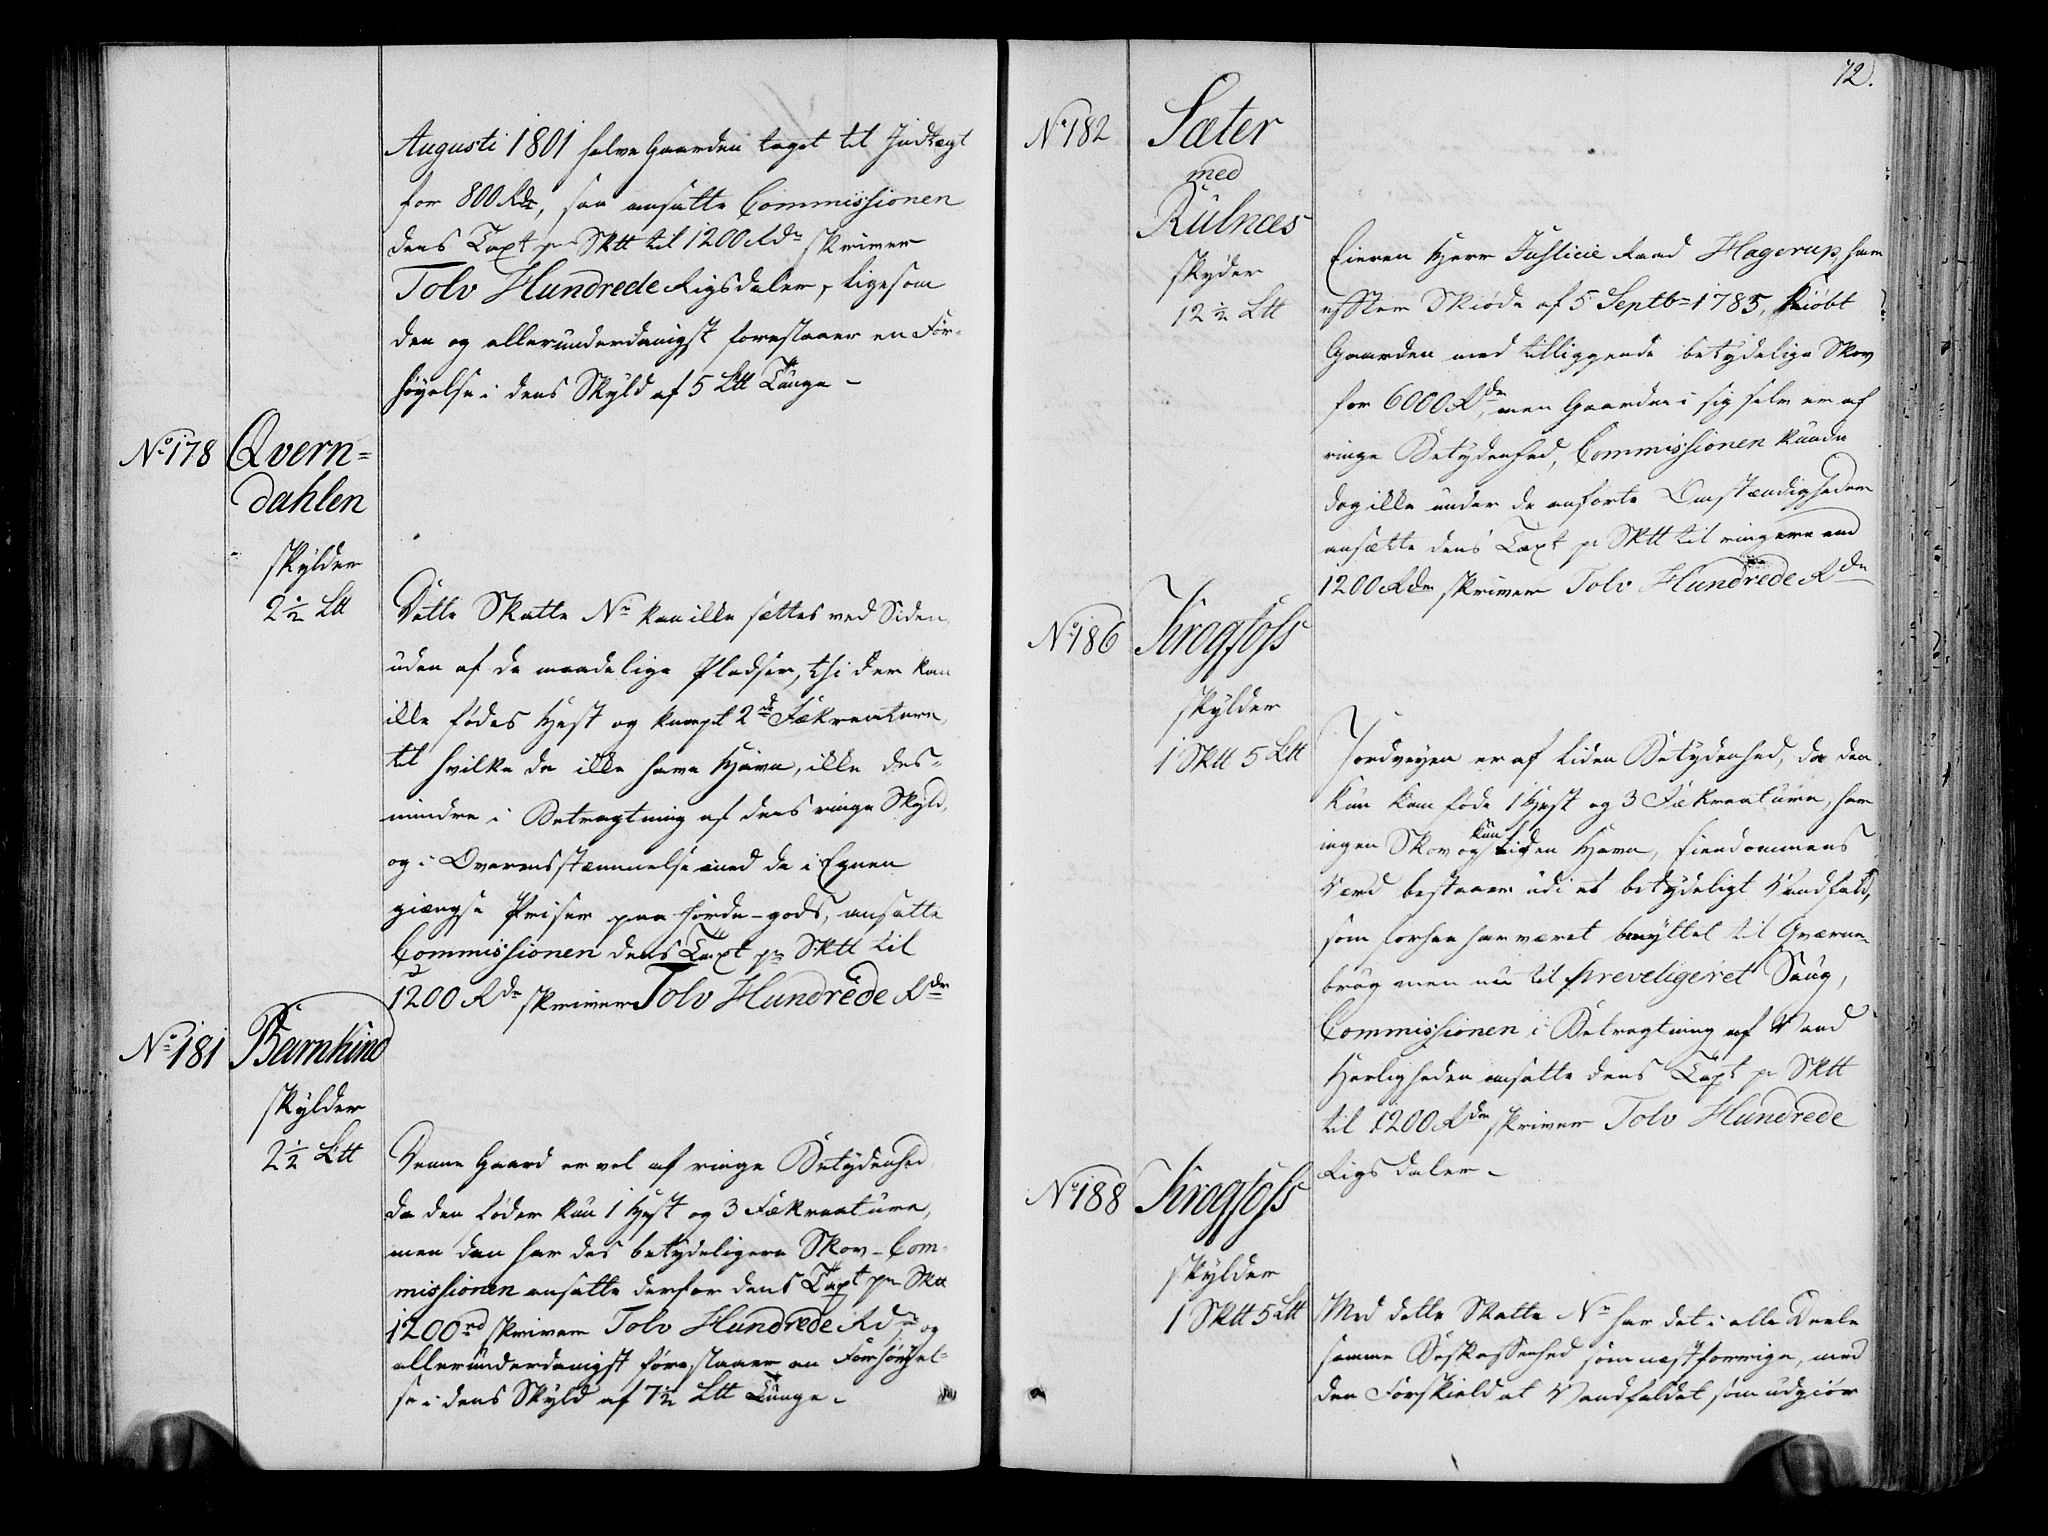 Augusti 1801 halve Gaarden taget til Indtægt
for 800 Rdr, saa ansatte Commissionen
dens Taxt pr Sktt til 1200 Rdr skriver
Tolv Hundrede Rigsdaler, ligesom
den og allerunderdanigst forestaaer en For-
høyelse i dens Skyld af 5 Ltt Tunge -
No. 178 Qvern=
dahlen
skylder
2 1/2 Ltt
Dette Skatte Nr kan ikke sættes ved Siden
uden af de maadelige Pladser, thi der kan
ikke fødes Hest og knapt 2de Fækreature,
til hvilke de ikke have Havn, ikke des-
mindre i Betragtning af dens ringe Skyld,
og i Overensstæmmelse med de i Egnen
giængse Priser paa Jorde-gods, ansatte
Commissionen dens Taxt pr Sktt til
1200 Rdr skriver Tolv Hundrede Rdr
No. 181 Bærnhino
skylder
2 1/2 Ltt
Denne Gaard er vel af ringe Betydenhed,
da den føder kun 1 Hest og 3 Fækreature,
men den har des betydeligere Skov - Com-
missionen ansatte derfor dens Taxt pr Sktt
1200 rd skriver Tolv Hundrede Rdr, og
allerunderdanigst forestaaer en Forhøyel-
se i dens Skyld af 7 1/2 Ltt Tunge -
72.
No. 182 Sæter
med
Rulnæs
skyder
12 1/2 Ltt
Eieren Herr Justice Raad Hagerup, har
efter Skiøde af 5 Septbr 1785, kiøbt
Gaarden med tilliggende betydelige Skov
for 6000 Rdr, men Gaarden i sig selv er af
ringe Betydenhed, Commissionen kunde
dog ikke under de anførte Omstændigheder
ansætte dens Taxt pr Sktt til ringere end
1200 Rdr skriver Tolv Hundrede Rdr
No. 186 Krogfoss
skylder
1 Sktt 5 Ltt
Jordveyen er af liden Betydenhed, da den
kun kan føde 1 Hest og 3 Fækreature, har
ingen Skov og kun liden Havn, Eiendommens
Værd bestaaer udi et betydeligt Vandfald,
som forhen har været benyttet til Qværne-
brug men nu til preveligeret Saug,
Commissionen i Betragtning af Vand
Herligheden ansatte dens Taxt pr Sktt
til 1200 Rdr skriver Tolv Hundrede
Rigsdaler -
No. 188 Krogfoss
skylder
1 Sktt 5 Ltt
Med dette Skatte Nr har det i alle Deele
samme Beskaffenhed som næst forrige, med
den Forskield at Vandfaldet som udgiør